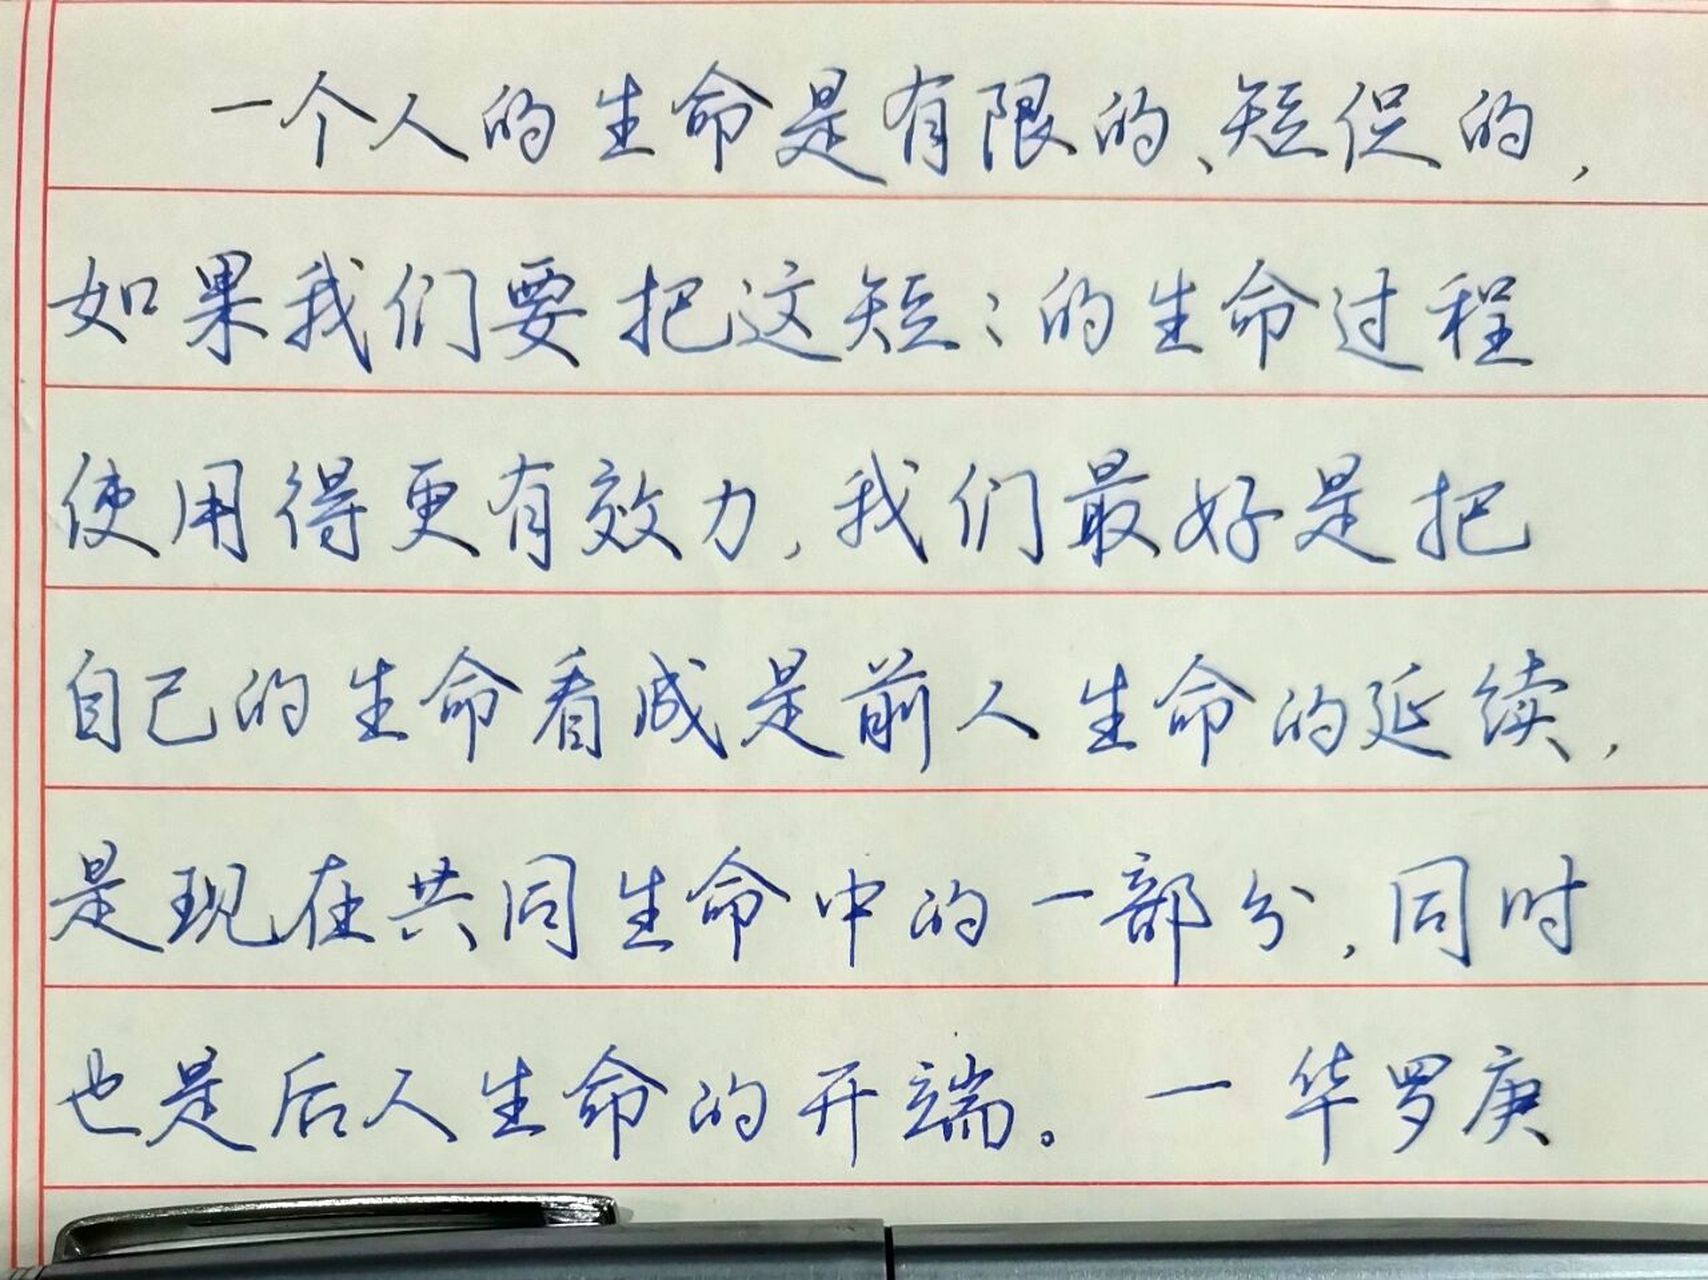 一个人的生命是有限的、短促的，
如果我们要把这短：的生命过程
使用得更有效力，我们最好是把
自己的生命看成是前人生命的延续，
是现在共同生命中的一部分，同时
也是后人生命的开端。一华罗庚